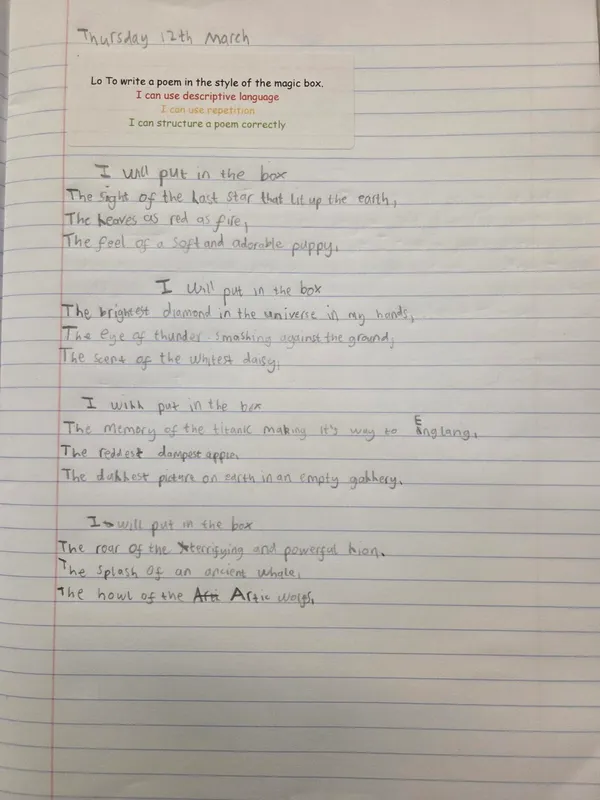 Thursday 12th March
Lo To write a poem in the style of the magic box.
I can use descriptive language
I can use repetition
I can structure a poem correctly
I will put in the box
The sight of the last star that lit up the earth,
The leaves as red as fire,
The feel of a soft and adorable puppy,
I will put in the box
The brightest diamond in the universe in my hands,
The eye of thunder smashing against the ground,
The scent of the whitest daisy,
I will put in the box
The memory of the titanic making it's way to Englang,
The reddest dampest apple,
The dullest picture on earth in an empty gallery,
I will put in the box
The roar of the terrifying and powerful lion,
The splash of an ancient whale,
The howl of the Artic wolfs,